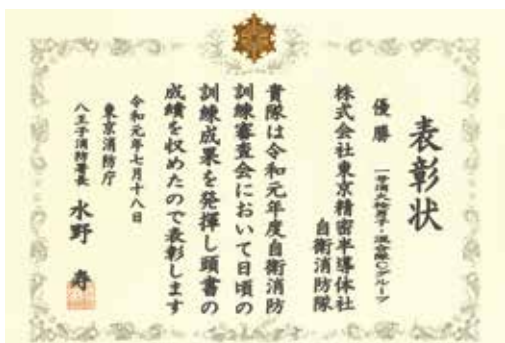 表彰状
優勝 一号消火栓男子・混合隊Cグループ
株式会社東京精密半導体社
自衛消防隊
貴隊は令和元年度自衛消防
訓練審査会において日頃の
訓練成果を発揮し頭書の
成績を収めたので表彰します
令和元年七月十八日
東京消防庁
八王子消防署長 水野 寿